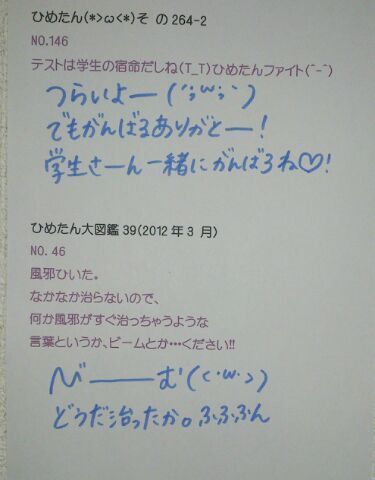 ひめたん(*>ω<*)その264-2
NO.146
テストは学生の宿命だしね(T_T)ひめたんファイト(^-^)
つらいよー(´;ω;`)
でもがんばるありがとー!
学生さーん一緒にがんばろね♡!
ひめたん大図鑑39(2012年3月)
NO.46
風邪ひいた。
なかなか治らないので、
何か風邪がすぐ治っちゃうような
言葉というか、ビームとか…ください!!
び———む(<・ω・>)
どうだ治ったか。ふふふん